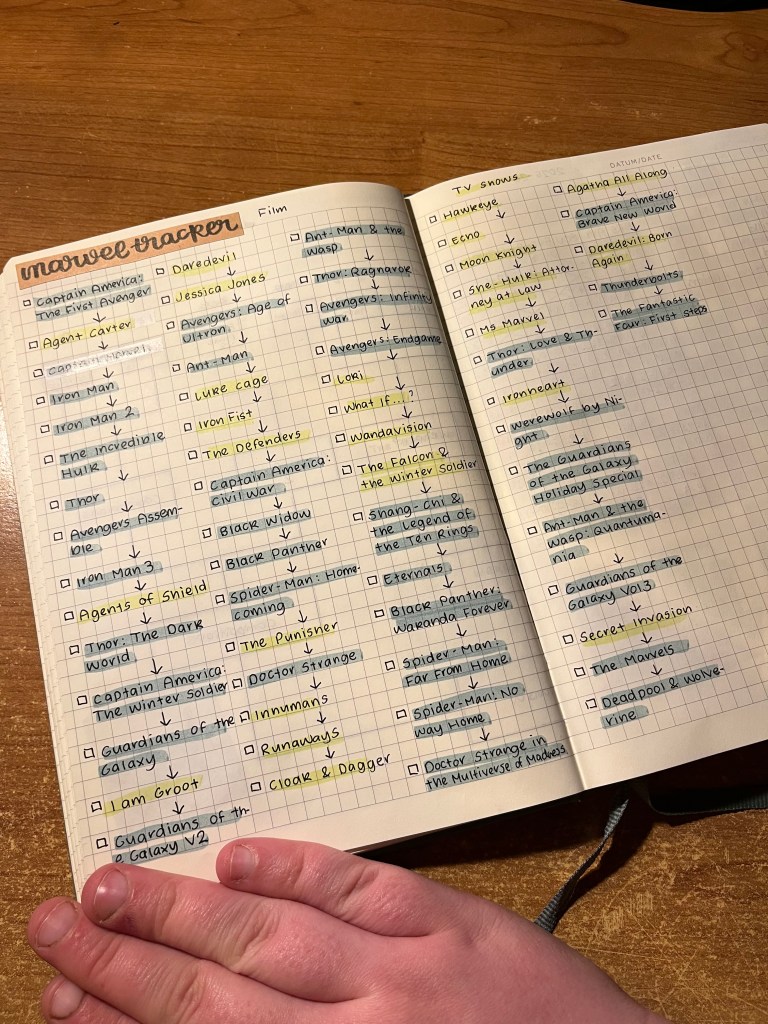 marvel tracker
Film
Captain America:
The First Avenger
Agent Carter
Captain Marvel
Iron Man
Iron Man 2
The Incredible
Hulk
Thor
Avengers Assem-
ble
Iron Man 3
Agents of Shield
Thor: The Dark
World
Captain America:
The Winter Soldier
Guardians of the
Galaxy
I am Groot
Guardians of th-
e Galaxy V2
Daredevil
Jessica Jones
Avengers: Age of
Ultron
Ant-Man
Luke Cage
Iron Fist
The Defenders
Captain America:
Civil War
Black Widow
Black Panther
Spider-Man: Home-
coming
The Punisher
Doctor Strange
Innumans
Runaways
Cloak & Dagger
Ant-Man & the
Wasp
Thor: Ragnarok
Avengers: Infinity
War
Avengers: Endgame
Loki
What If...?
Wandavision
The Falcon &
the Winter Soldier
Shang-Chi &
the Legend of
the Ten Rings
Eternals
Black Panther:
Wakanda Forever
Spider-Man:
Far From Home
Spider-Man: No
Way Home
Doctor Strange in
the Multiverse of Madness
TV shows
Hawkeye
Echo
Moon Knight
She-Hulk: Attor-
ney at Law
Ms Marvel
Thor: Love & Th-
under
Ironheart
Werewolf by Ni-
ght
The Guardians
of the Galaxy
Holiday Special
Ant-Man & the
Wasp: Quantuma-
nia
Guardians of the
Galaxy Vol3
Secret Invasion
The Marvels
Deadpool & Wolve-
rine
DATUM/DATE
Agatha All Along
Captain America:
Brave New World
Daredevil: Born
Again
Thunderbolts
The Fantastic
Four: First Steps